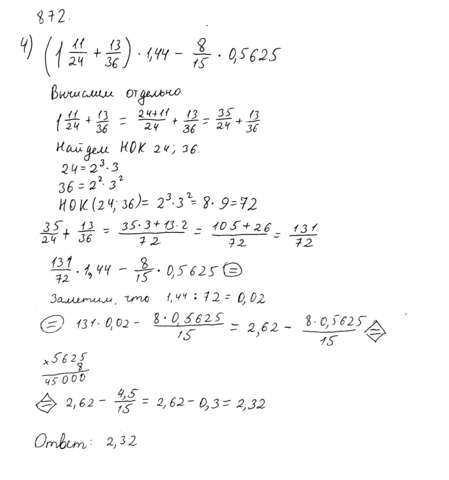 872.
4) (1 11/24 + 13/36) · 1,44 − 8/15 · 0,5625
Вычислим отдельно
1 11/24 + 13/36 = (24+11)/24 + 13/36 = 35/24 + 13/36
Найдем НОК 24; 36.
24 = 2³ · 3
36 = 2² · 3²
НОК (24; 36) = 2³ · 3² = 8 · 9 = 72
35/24 + 13/36 = (35·3 + 13·2)/72 = (105 + 26)/72 = 131/72
131/72 · 1,44 − 8/15 · 0,5625 =
Заметим, что 1,44 : 72 = 0,02
= 131 · 0,02 − (8 · 0,5625)/15 = 2,62 − (8 · 0,5625)/15 =
×5625
8
45000
= 2,62 − 4,5/15 = 2,62 − 0,3 = 2,32
Ответ: 2,32